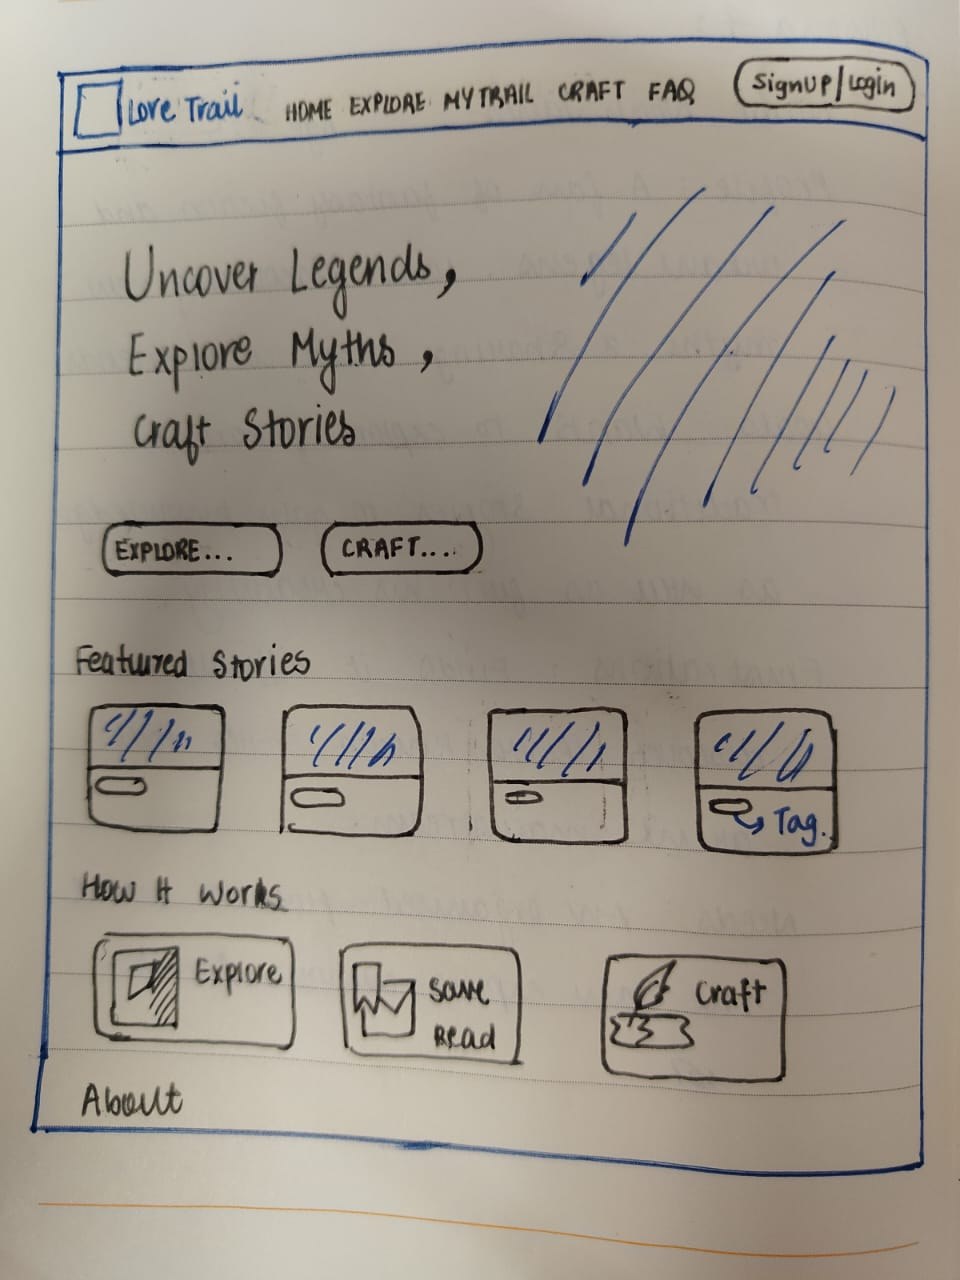 Lore Trail HOME EXPLORE MYTRAIL CRAFT FAQ SignUP/Login
Uncover Legends,
Explore Myths,
Craft Stories
EXPLORE... CRAFT....
Featured Stories
Tag.
How It Works
Explore
Save
Read
Craft
About